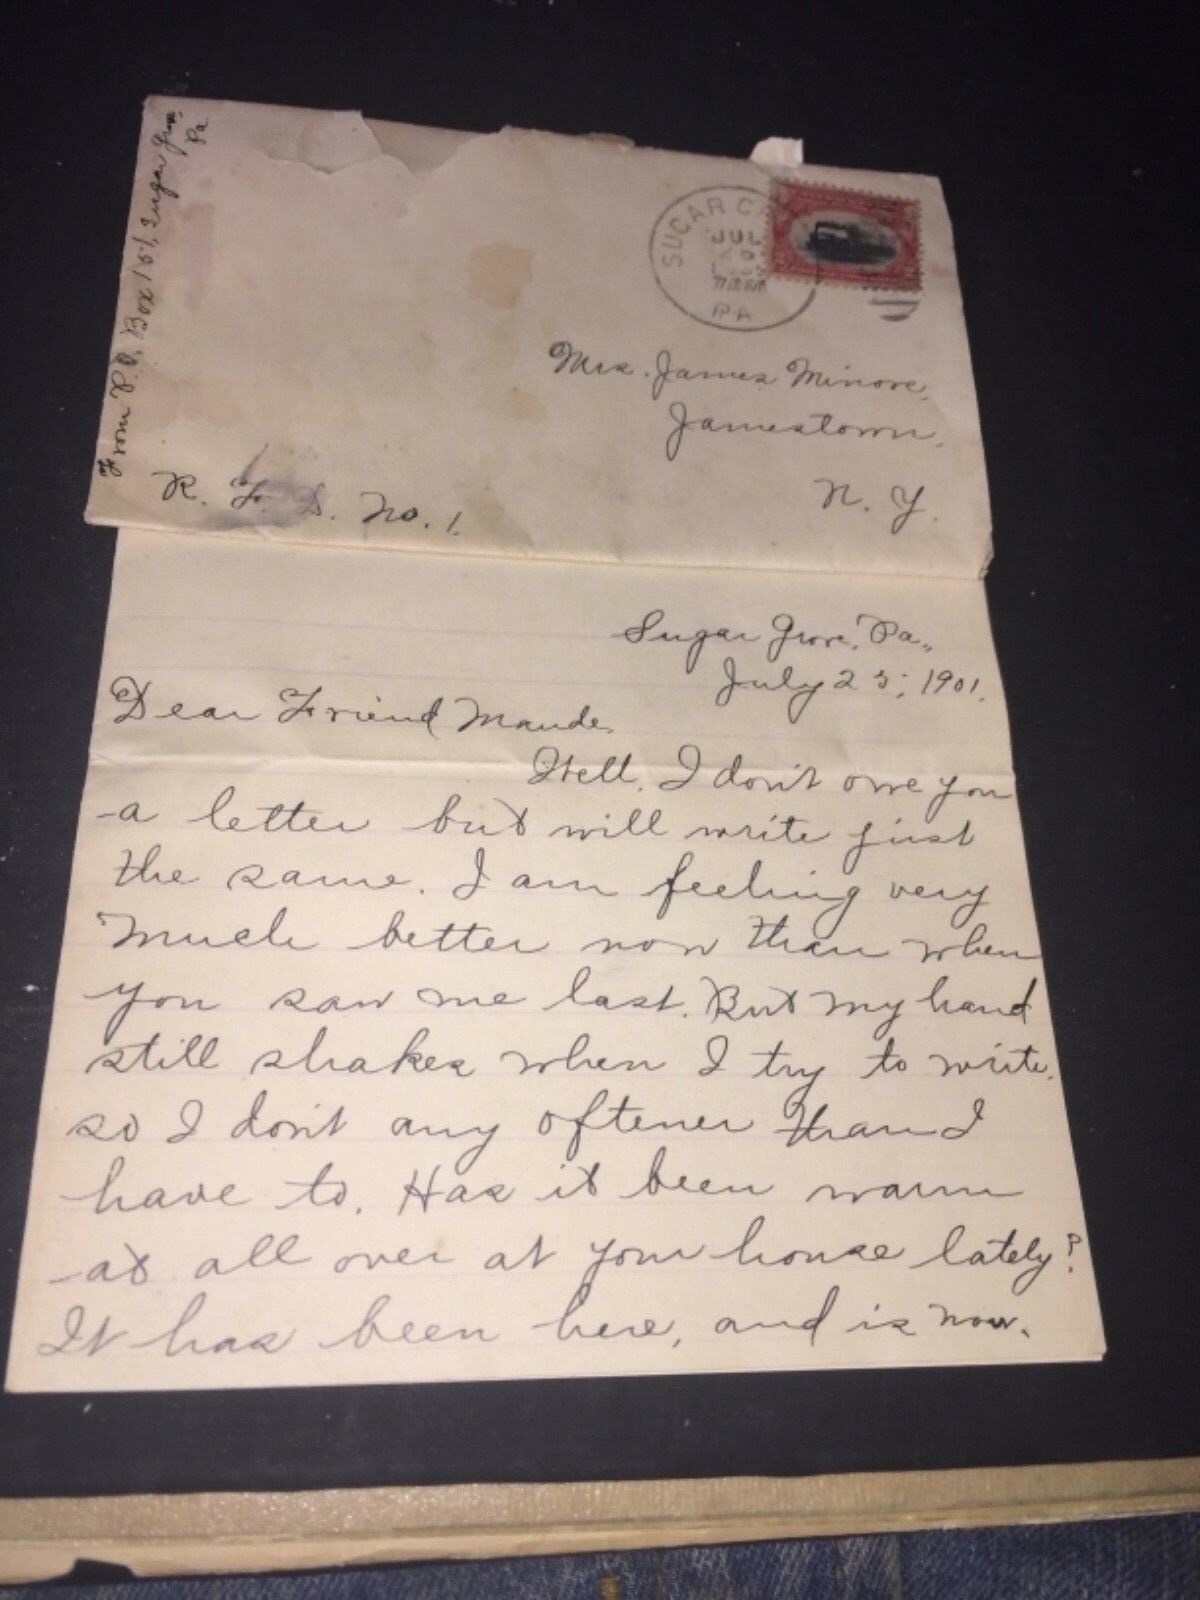 From P.O. Box 151, Sugar Grove
Pa
SUGAR
JUL
PA
Mrs. James Minore,
Jamestown,
N. Y.
R. F. D. No. 1.
Sugar Grove, Pa.,
July 25, 1901.
Dear Friend Maude.
Well, I don't owe you
a letter but will write just
the same. I am feeling very
much better now than when
you saw me last. But my hand
still shakes when I try to write.
so I don't any oftener than I
have to. Has it been warm
at all over at your house lately?
It has been here, and is now.